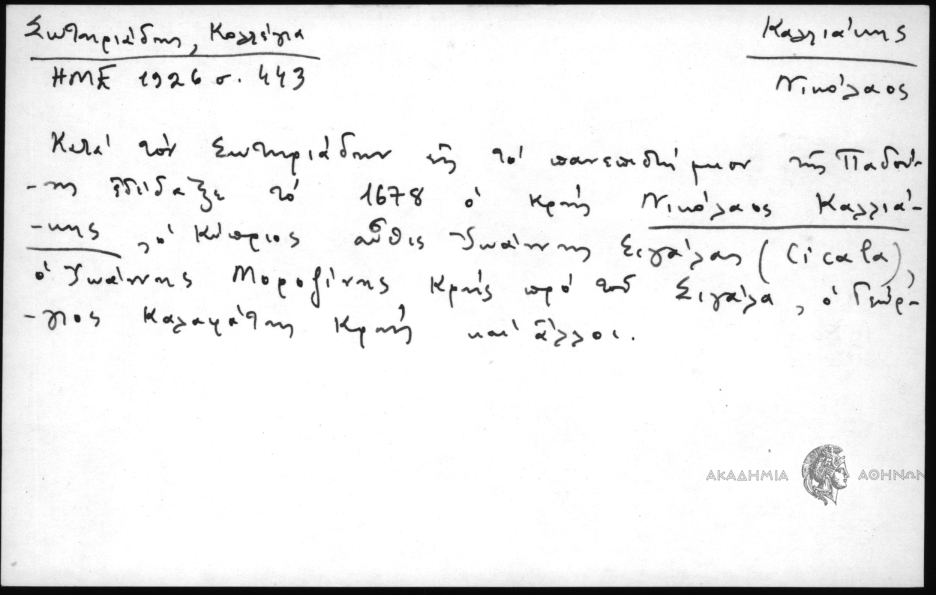 Σωτηριάδης, Κολλέγια
Καλλιάκης
ΗΜΕ 1926 σ. 443
Νικόλαος
Κατά τόν Σωτηριάδην εἰς τό πανεπιστήμιον τῆς Παδού-
-ης ἐδίδαξε τό 1678 ὁ Κρής Νικόλαος Καλλιά-
-κης, ὁ Κύπριος αὖθις Ἰωάννης Σιγάλας (Cicala),
ὁ Ἰωάννης Μοροζίνης Κρής πρό τοῦ Σιγάλα, ὁ Γεώρ-
-γιος Καλαφάτης Κρής καί ἄλλοι.
ΑΚΑΔΗΜΙΑ ΑΘΗΝΩΝ